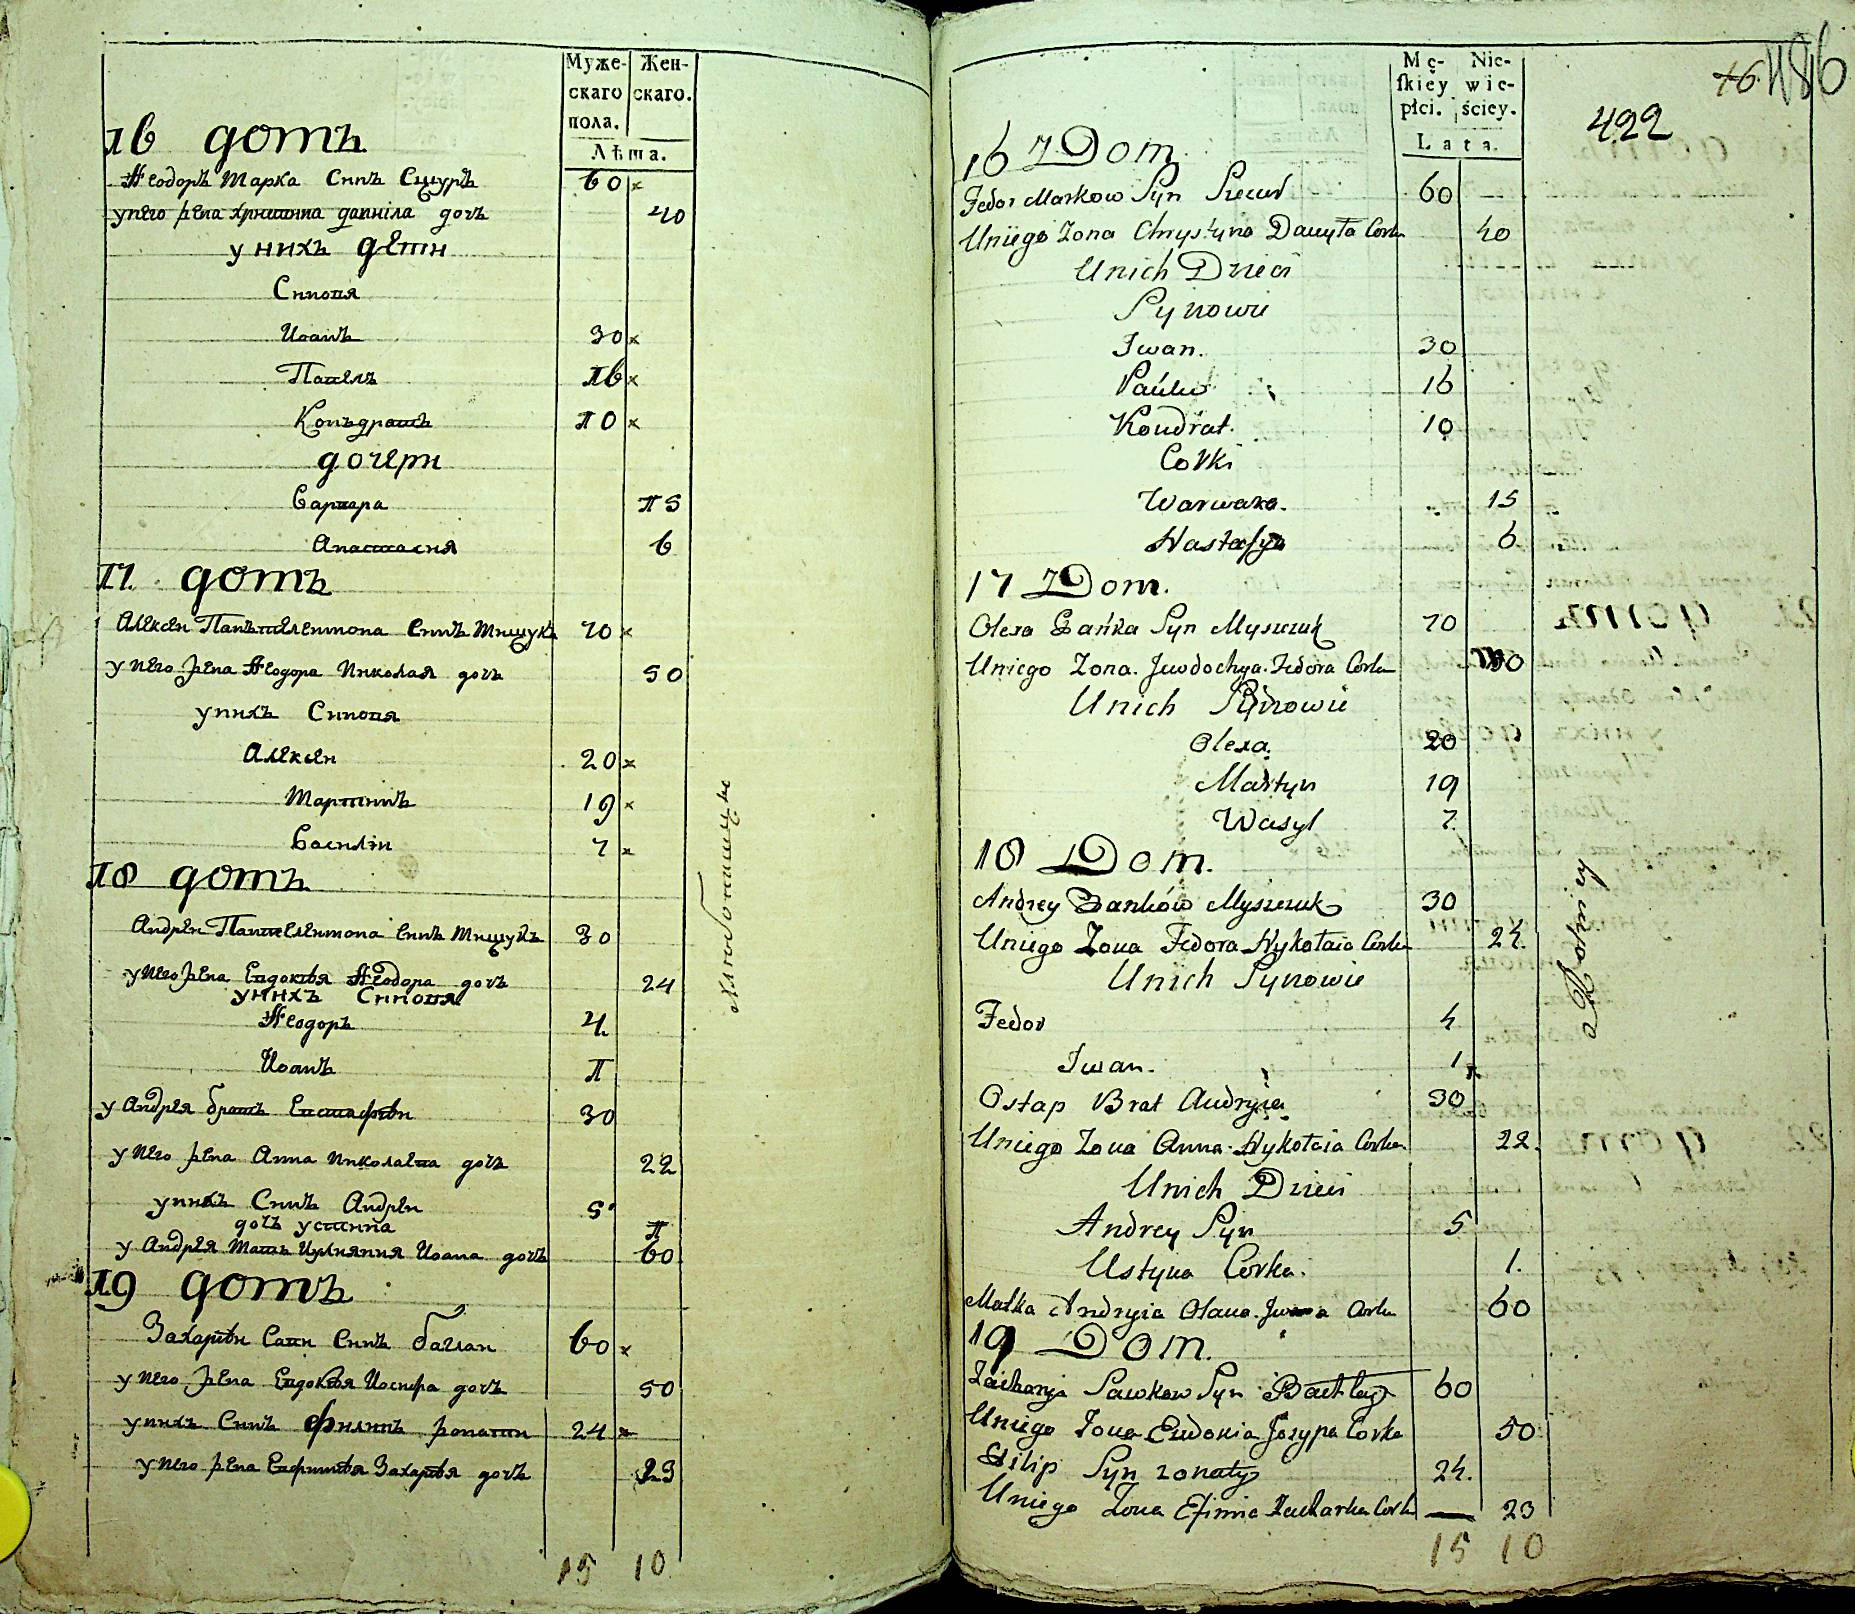 Муже- Жен-
скаго скаго.
пола.
Лѣта.
16 домъ
Ѳеодоръ Марка Синъ Сцуръ 60 ×
унего жена Христина даніила дочъ 40
у нихъ дети
Синовя
Иоанъ 30 ×
Павелъ 16 ×
Конъдратъ 10 ×
дочери
Варвара 15
Анастасия 6
17. домъ
Алексеи Панътелеимона синъ Мищукъ 70 ×
у него жена Ѳеодора Николая дочъ 50
унихъ Синовя
Алексеи 20 ×
Мартинъ 19 ×
Василіи 7 ×
18 домъ
Андреи Пантелеимона синъ Мищукъ 30
унего жена Евдокия Ѳеодора дочъ 24
унихъ Синовя
Ѳеодоръ 4.
Иоанъ 1
у Андрея братъ Евстафіи 30
у него жена Анна Николаева дочъ 22
унихъ Синъ Андреи 5
дочъ устина 1
у Андрея Матъ Иулияния Иоана дочъ 60
19 домъ
Захаріи Савы синъ бачлаи 60 ×
у него жена Евдокия Иосифа дочъ 50
унихъ Синъ Филипъ жонатии 24 ×
у него жена Евфимия Захария дочъ 23
15 10
Mę- Nie-
ſkiey wie-
płci. ściey.
Lata.
422
76. 486
16 Dom
Fedor Markow Syn 60
Uniego Zona Chrystyna Danyła Corka 40
Unich Dzieci
Synowie
Iwan. 30
Pawło 16
Kondrat. 10
Corki
Warwara. 15
Nastasya 6
17 Dom.
Olexa Pańka Syn Myszczuk 70
Uniego Zona. Jewdochya. Fedora Corka 50
Unich Synowie
Olexa. 20
Martyn 19
Wasyl 7.
18 Dom.
Andrey Pańków Myszczuk 30
Uniego Zona Fedora Nykołaia Corka 24.
Unich Synowie
Fedor 4
Iwan. 1
Ostap Brat Andryia 30
Uniego Zona Anna Nykołaia Corka 22.
Unich Dzieci
Andrey Syn 5
Ustyna Corka. 1.
Matka Andryia Olana. Jwana Corka 60
19 Dom.
Zacharya Sawkow Syn Baczlay 60
Uniego Zona Eudokia Jozypa Corka 50
Filip Syn zonaty 24.
Uniego Zona Efimia Zacharka Corka — 23
15 10